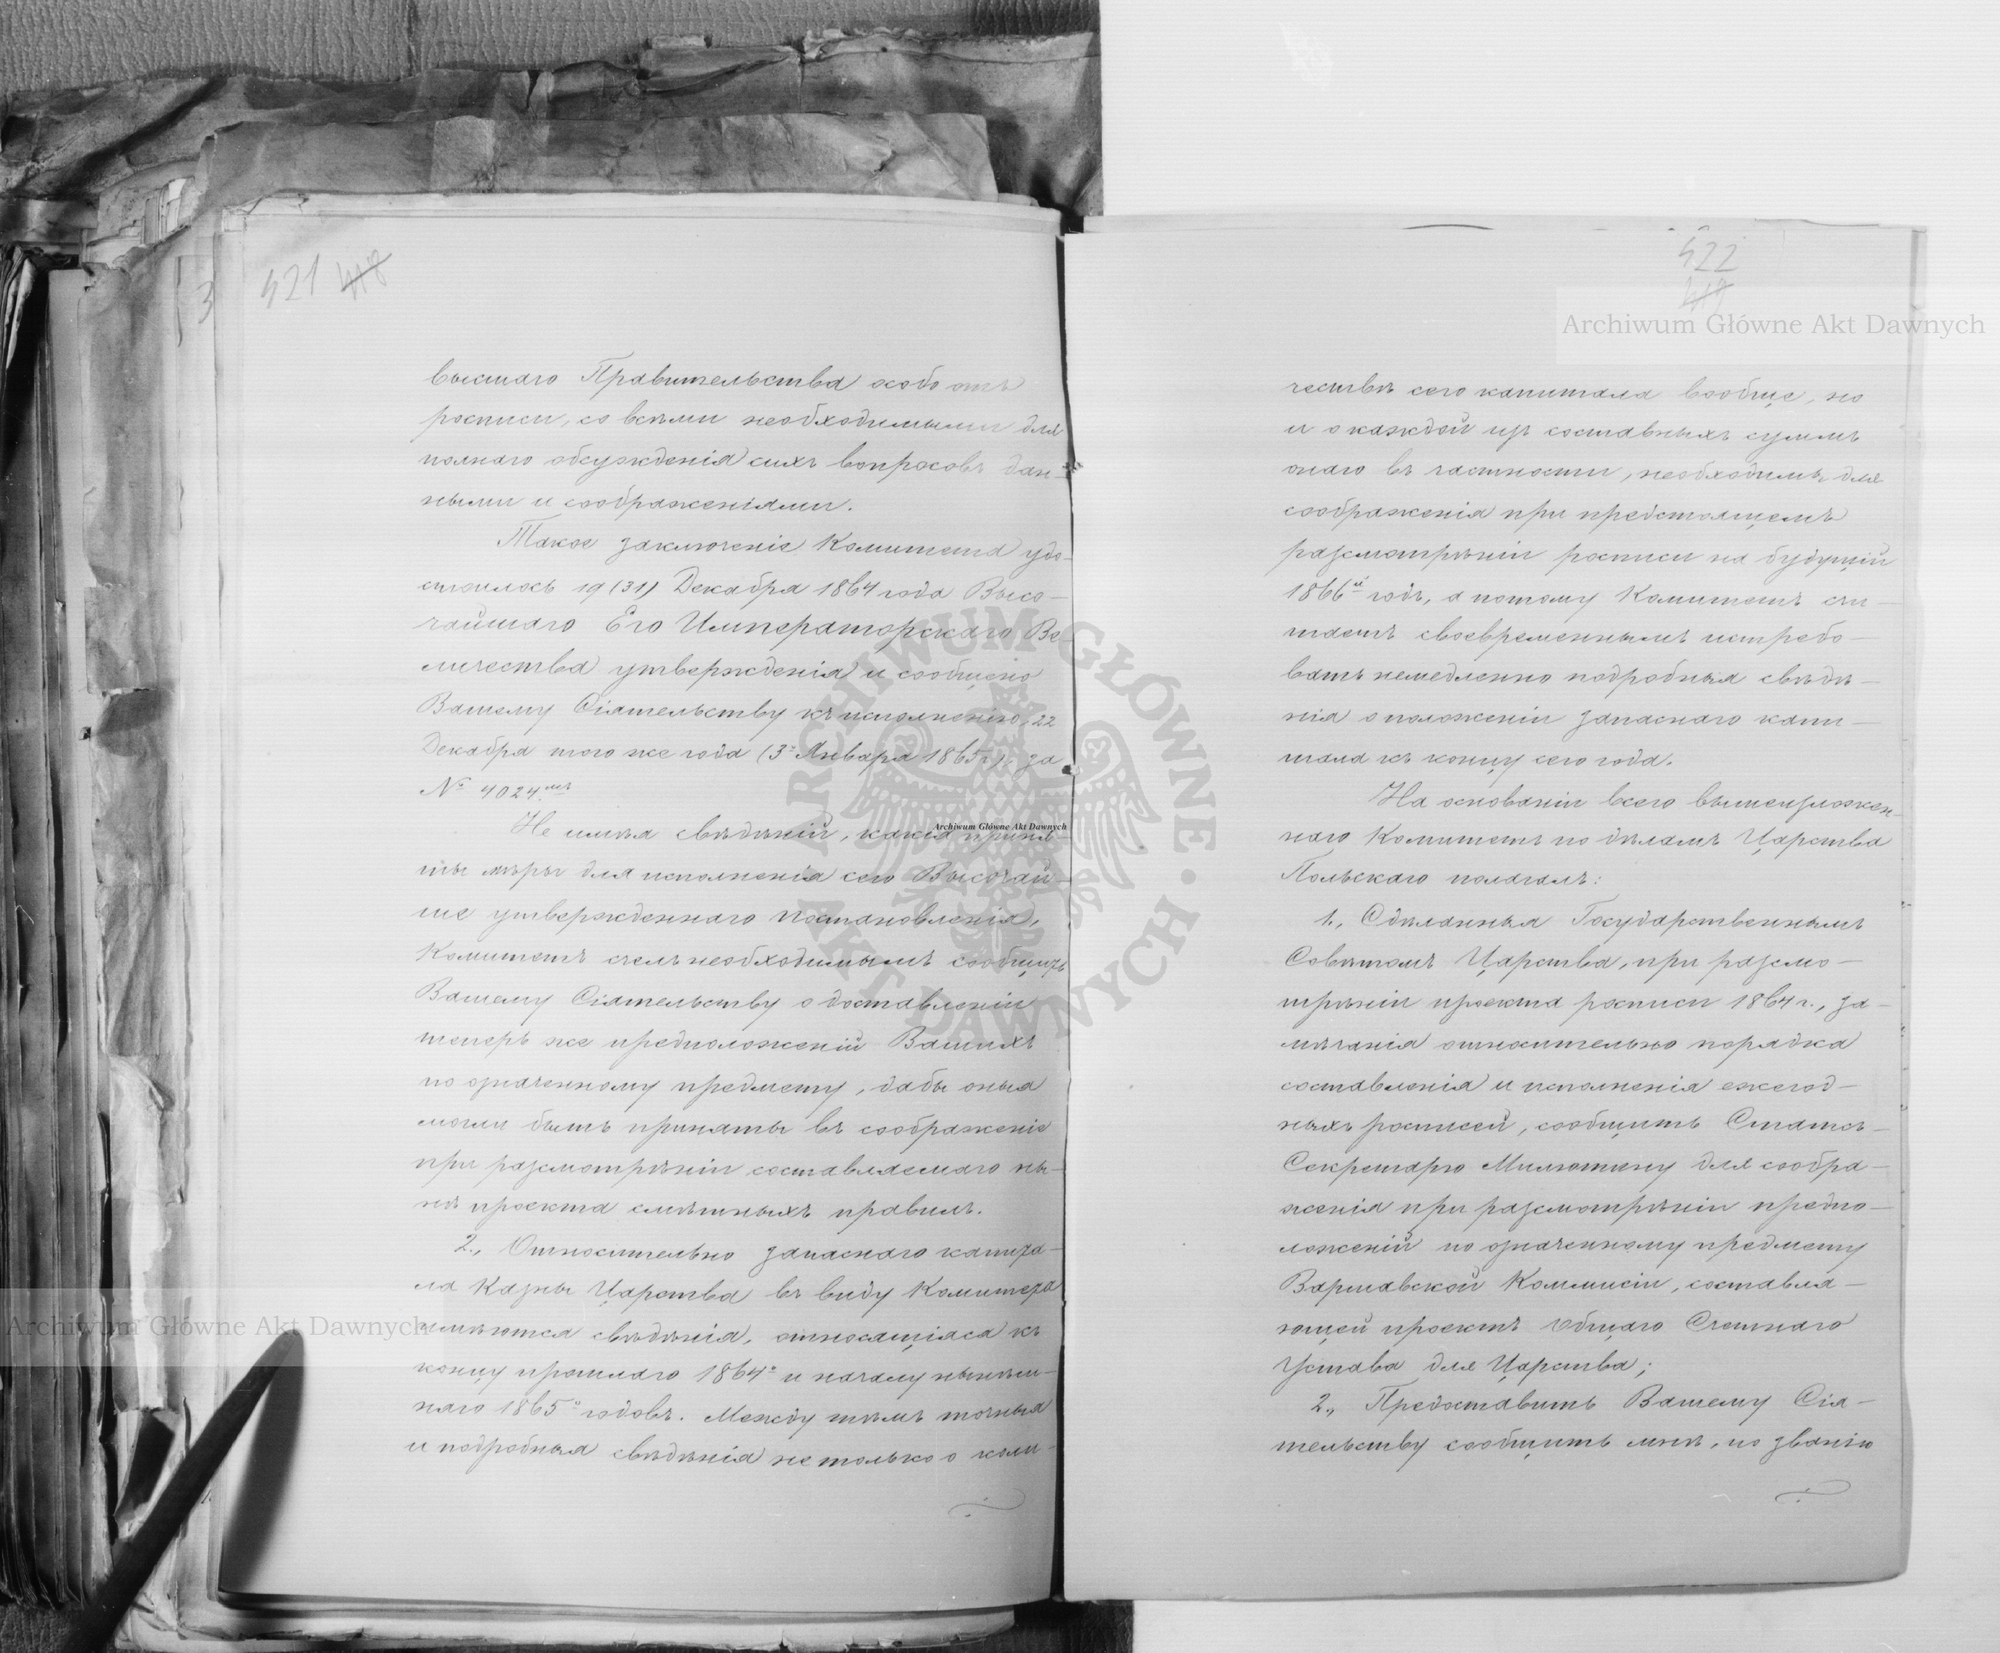 521 418
высшаго Правительства особо отъ
росписи, со всѣми необходимыми для
полнаго обсужденія сихъ вопросовъ дан-
ными и соображеніями.
Такое заключеніе Комитета удо-
стоилось 19 (31) Декабря 1864 года Высо-
чайшаго Его Императорскаго Ве-
личества утвержденія и сообщено
Вашему Сіятельству къ исполненію, 22
Декабря того же года (3го Января 1865 г.) за
№ 4024мъ
Не имѣя свѣдѣній, какія приня-
ты мѣры для исполненія сего Высочай-
ше утвержденнаго постановленія,
Комитетъ счелъ необходимымъ сообщить
Вашему Сіятельству о доставленіи
теперь же предположеній Вашихъ
по означенному предмету, дабы оныя
могли быть приняты въ соображеніе
при разсмотрѣніи составляемаго ны-
нѣ проекта смѣтныхъ правилъ.
2., Относительно запаснаго капита-
ла Казны Царства въ виду Комитета
имѣются свѣдѣнія, относящіяся къ
концу прошлаго 1864го и началу нынѣш-
няго 1865го годовъ. Между тѣмъ точныя
и подробныя свѣдѣнія не только о коли-
522
419
чествѣ сего капитала вообще, но
и о каждой изъ составныхъ суммъ
онаго въ частности, необходимы для
соображенія при предстоящемъ
разсмотрѣніи росписи на будущій
1866й годъ, а потому Комитетъ счи-
таетъ своевременнымъ истребо-
вать немедленно подробныя свѣдѣ-
нія о положеніи запаснаго капи-
тала къ концу сего года.
На основаніи всего вышеизложен-
наго Комитетъ по дѣламъ Царства
Польскаго полагалъ:
1., Сдѣланныя Государственнымъ
Совѣтомъ Царства, при разсмо-
трѣніи проекта росписи 1864 г., за-
мѣчанія относительно порядка
составленія и исполненія ежегод-
ныхъ росписей, сообщить Статсъ-
Секретарю Милютину для сообра-
женія при разсмотрѣніи предпо-
ложеній по означенному предмету
Варшавской Коммисіи, составля-
ющей проектъ Общаго Счетнаго
Устава для Царства;
2., Предоставить Вашему Сія-
тельству сообщить мнѣ, по званію
Archiwum Główne Akt Dawnych
Archiwum Główne Akt Dawnych
Archiwum Główne Akt Dawnych
ARCHIWUM GŁÓWNE AKT DAWNYCH